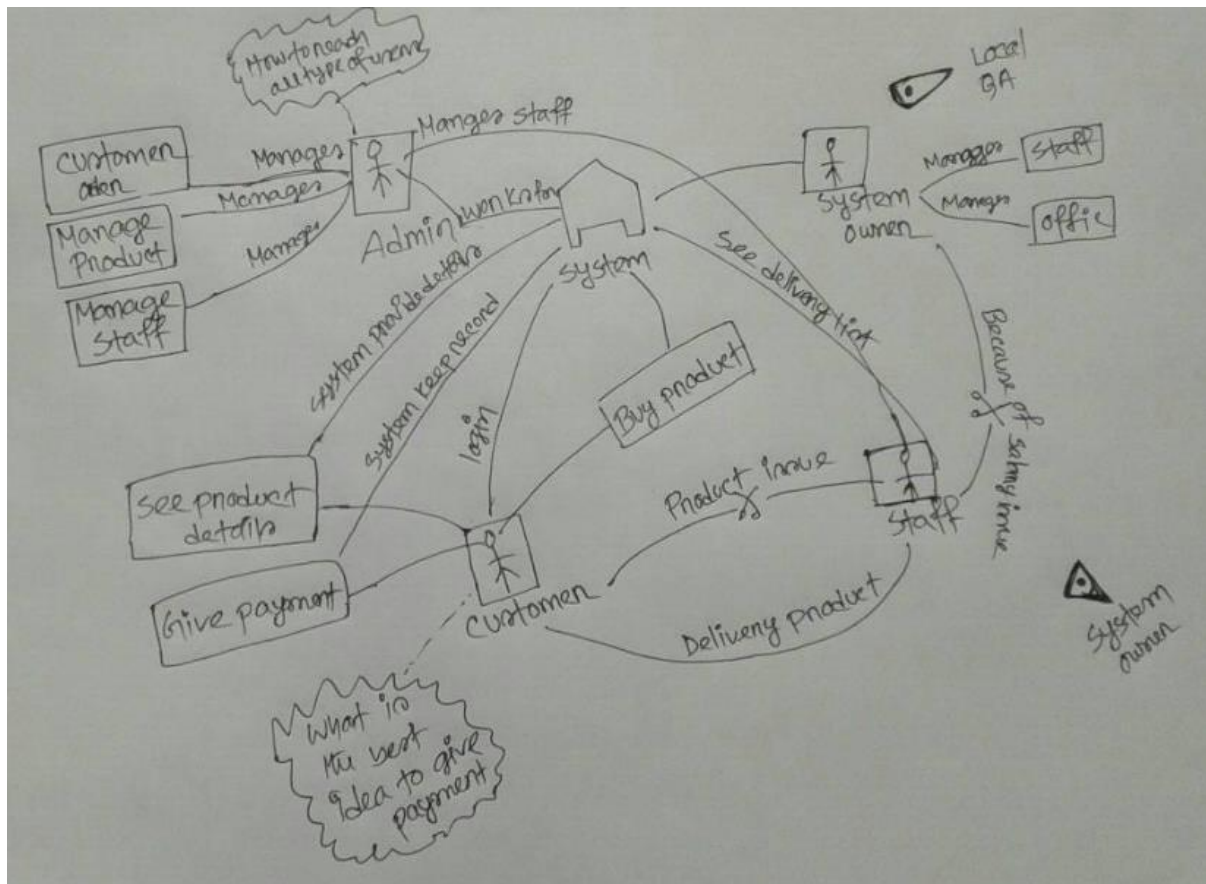 How to reach
all type of users
Manges staff
Local
QA
Customer
Manages
Manages
Manages
Manage
Product
Manage
Staff
Admin
work for
System
System
owner
Manages
Staff
Manages
offic
System provide details
System keep record
login
Buy product
See delivery list
Because of salary issue
See product
details
Give payment
Product issue
Staff
Customer
Delivery product
System
owner
What is
the best
idea to give
payment